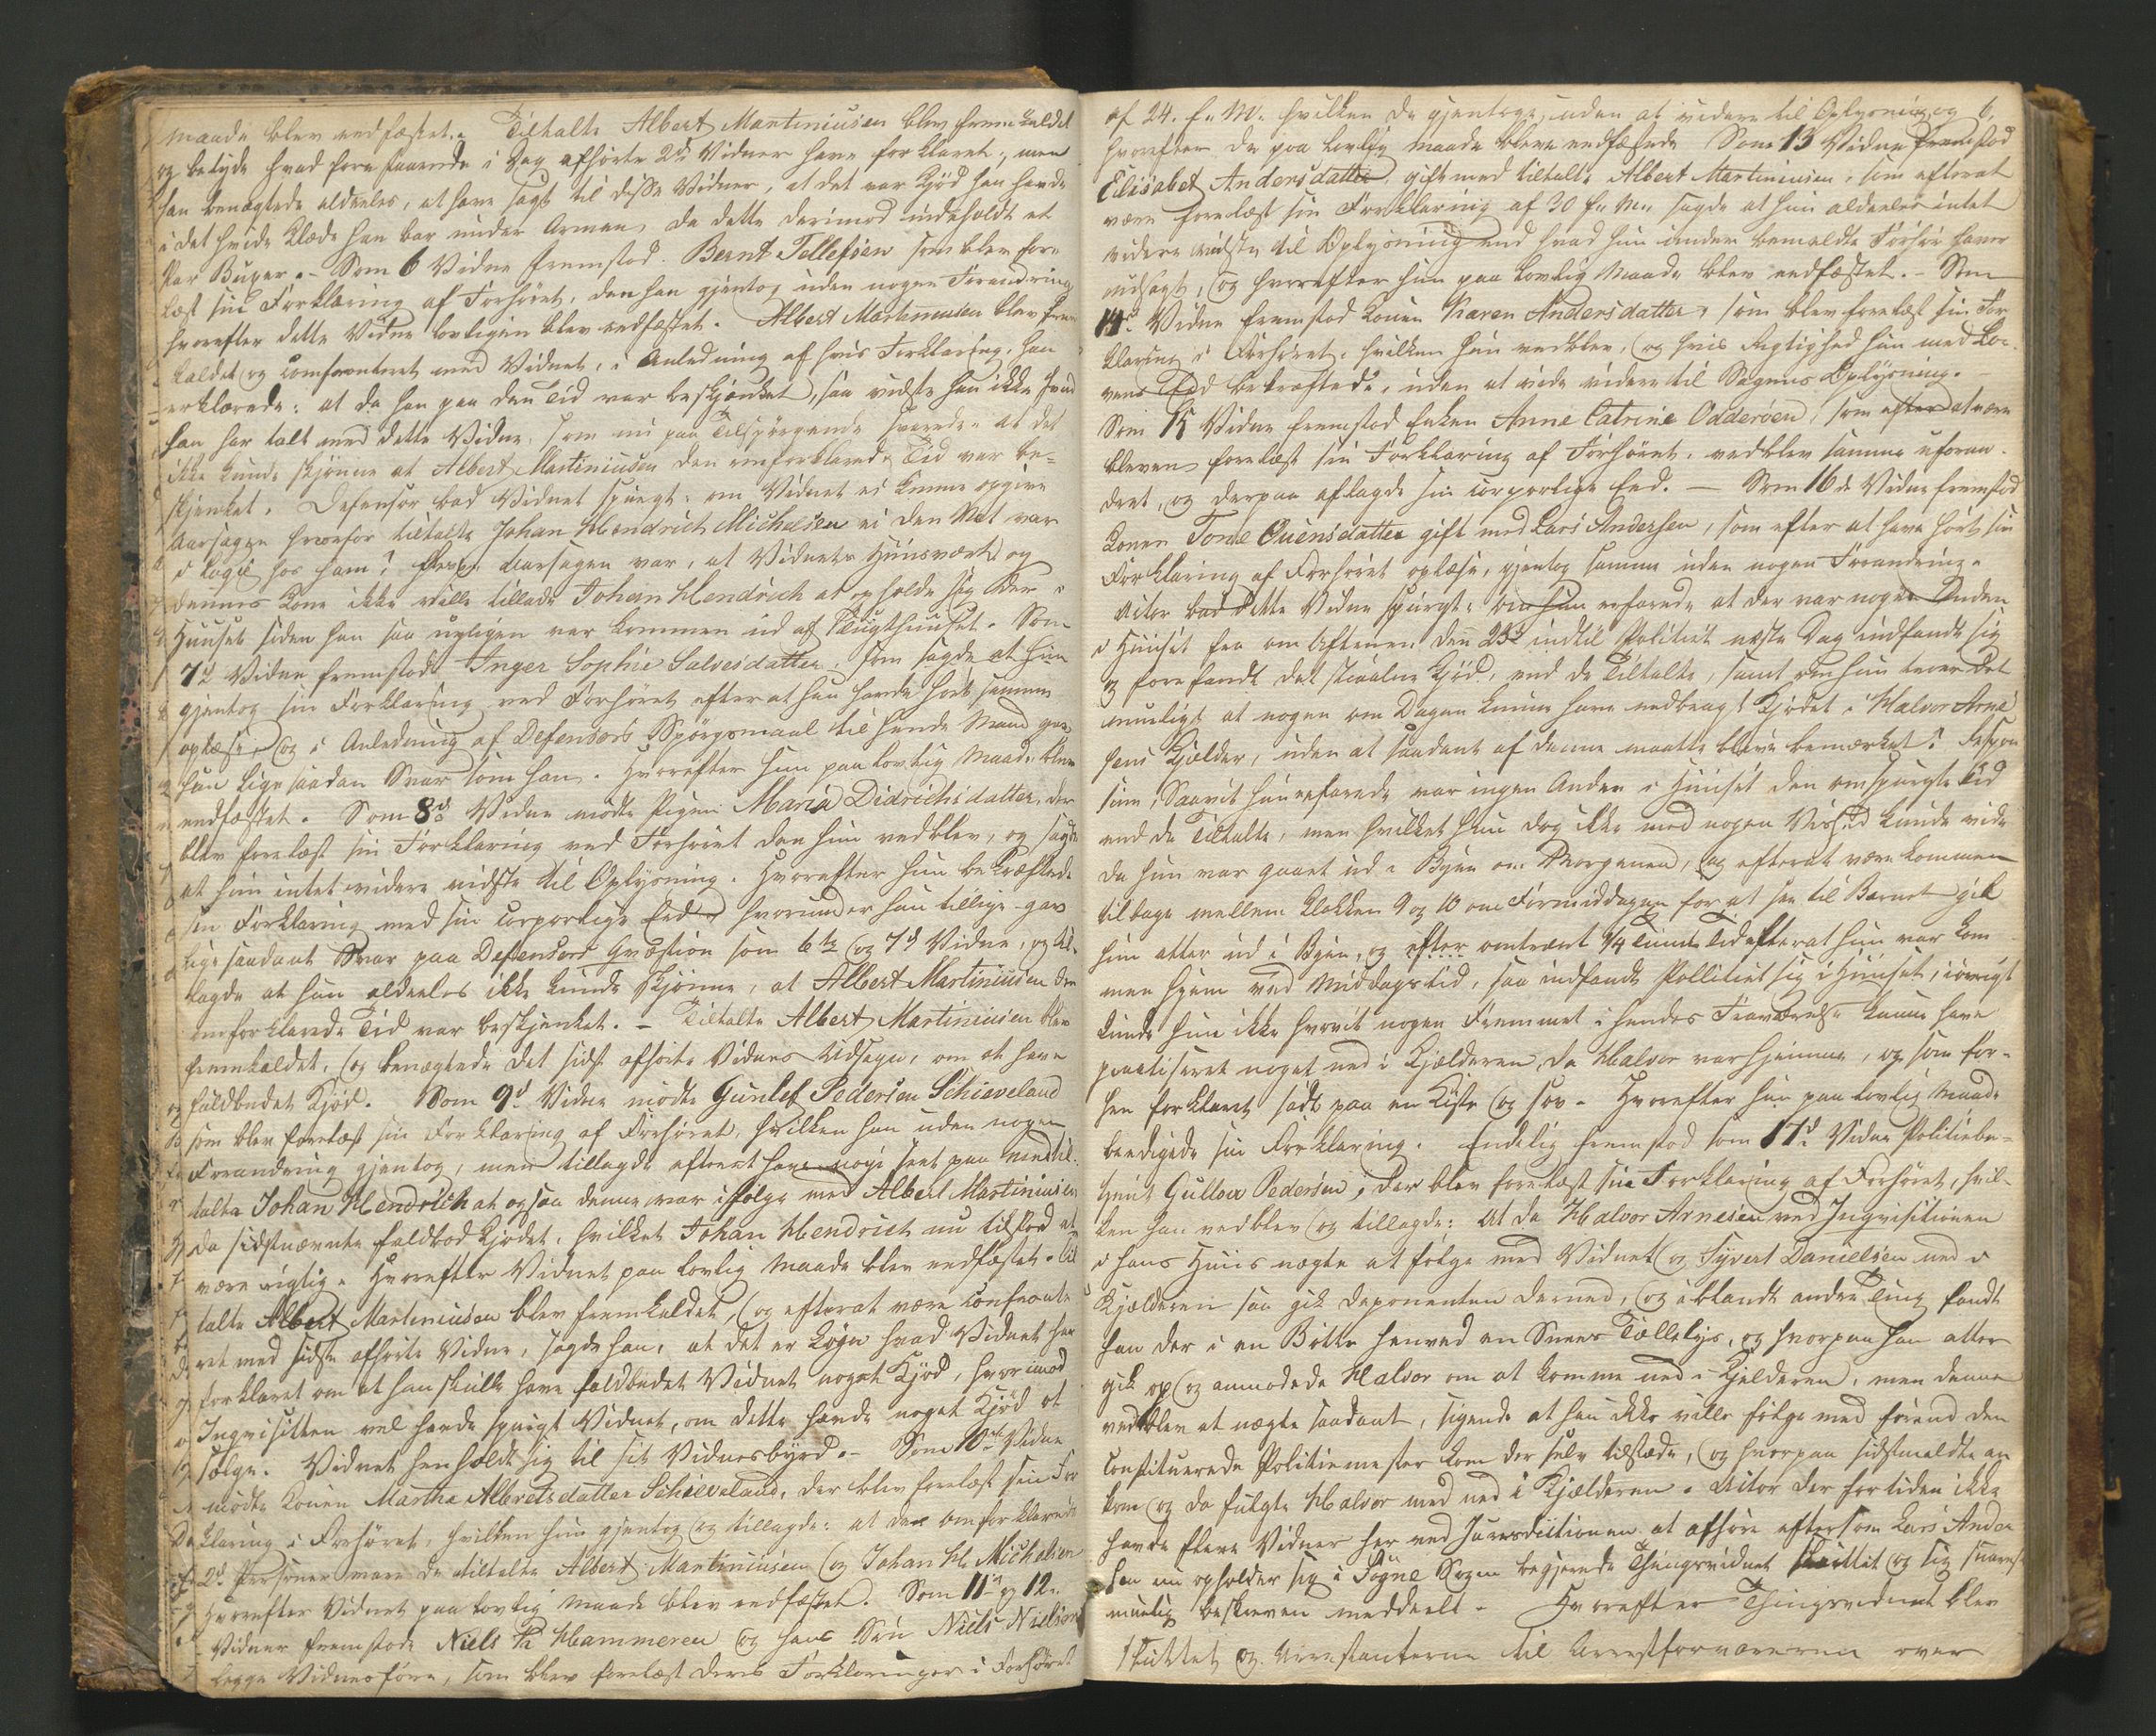 Maade blev eedfæstet. Tiltalte Albert Martiniusen blev fremkaldet
og betyde hvad forestaaende i Dag afhørte 2de Vidner have forklaret, men
han benægtede aldeeles, at have sagt til disse Vidner, at det var Kjød han havde
i det hvide Klæde han bar under Armen, da dette derimod indeholdt et
Par Buxer. – Som 6 Vidne fremstod Bernt Tellefsen som blev fore-
læst sin Forklaring af Forhøret, den han gjentog uden nogen Forandring
hvorefter dette Vidne lovligen blev eedfæstet. Albert Martiniusen blev frem-
kaldet og confronteret med Vidnet, i Anledning af hvis Forklaring, han
erklærede: at da han paa den Tid var beskjænket, saa vidste han ikke hvad
han har talt med dette Vidne, som nu paa Tilspørgende svarede: at det
ikke kunde skjønne at Albert Martiniusen den omforklarede Tid var be-
skjenket. Defensor bad Vidnet spurgt: om Vidnet ei kunne opgive
Aarsagen hvorfor tiltalte Johan Hendrich Michelsen ei den Nat var
i Logie hos ham? Resp: Aarsagen var, at Vidnets Huusvært og
dennes Kone ikke vilde tillade Johan Hendrich at opholde sig der i
Huuset siden han saa nyligen var kommen ud af Tugthuuset. Som
7d Vidne fremstod Inger Sophie Salvesdatter, som sagde at hun
gjentog sin Forklaring ved Forhøret efter at hun havde hørt samme
oplæse, og i Anledning af Defensors Spørgsmaal til hendes Mand gav
hun lige saadan Svar som han. Hvorefter hun paa lovlig Maade blev
eedfæstet. Som 8de Vidne mødte Pigen Maria Didrichsdatter, der
blev forelæst sin Forklaring ved Forhøret den hun vedblev, og sagde
at hun intet videre vidste til Oplysning. Hvorefter hun bekræftede
sin Forklaring med sin corporlige Eed, hvorunder hun tillige gav
lige saadant Svar paa Defensors Qvæstion som 6te og 7d Vidne, og til-
lagde at hun aldeeles ikke kunde skjønne, at Albert Martiniusen den
omforklarede Tid var beskjenket. – Tiltalte Albert Martiniusen blev
fremkaldet, og benægtede det sidst afhørte Vidnes Udsagn, om at have
faldbudet Kjød. Som 9d Vidne mødte Gunlef Pedersen Schieveland
som blev forelæst sin Forklaring af Forhøret, hvilken han uden nogen
Forandring gjentog, men tillagde efterat have nøye seet paa medtil-
talte Johan Hendrich at ogsaa denne var i følge med Albert Martiniusen
da sidstnævnte faldbød Kjødet, hvilket Johan Hendrich nu tilstod at
være rigtig. Hvorefter Vidnet paa lovlig Maade blev eedfæstet. Til-
talte Albert Martiniusen blev fremkaldet, og efterat være confronte-
ret med sidste afhørte Vidne, sagde han, at det er Løgn hvad Vidnet har
forklaret om at han skulle have faldbudet Vidnet noget Kjød, hvorimod
Inqvisitten vel havde spurgt Vidnet, om dette havde noget Kjød at
sælge. Vidnet henholdt sig til sit Vidnesbyrd. – Som 10de Vidne
mødte Konen Martha Albretsdatter Schieveland, der blev forelæst sin For-
klaring i Forhøret, hvilken hun gjentog og tillagde: at de omforklarede
2de Personer vare de tiltalte Albert Martiniusen og Johan H. Michelsen
Hvorefter Vidnet paa lovlig Maade blev eedfæstet. Som 11te og 12te
Vidner fremstode Niels Hammeren og hans Søn Niels Nielsen
begge Vidnesføre, som blev forelæst deres Forklaringer i Forhøret
af 24. f. M. hvilken de gjentoge, uden at videre til Oplysning, og 6,
hvorefter de paa lovlig Maade bleve eedfæstede. Som 13 Vidne fremstod
Elisabet Andersdatter, gift med tiltalte Albert Martiniusen, som efterat
være forelæst sin Forklaring af 30 f. M. sagde at hun aldeeles intet
videre vidste til Oplysning end hvad hun under bemeldte Forhør haver
udsagt, og hvorefter hun paa lovlig Maade blev eedfæstet. – Som
14d Vidne fremstod Konen Karen Andersdatter, som blev forelæst sin For-
klaring i Forhøret, hvilken hun vedblev, og hvis Rigtighed hun med Lo-
vens Eed bekræftede, uden at vide videre til Sagens Oplysning.
Som 15 Vidne fremstod Enken Anne Catrine Odderøen, som efter at være
bleven forelæst sin Forklaring af Forhøret, vedblev samme uforan-
dret, og derpaa aflagde sin corporlige Eed. – Som 16de Vidne fremstod
Konen Tone Ouensdatter gift med Lars Andersen, som efter at have hørt sin
Forklaring af Forhøret oplæse, gjentog samme uden nogen Forandring.
Actor bad dette Vidne spurgt: om hun erfarede at der var nogen Anden
i Huuset fra om Aftenen den 23d indtil Politiet næste Dag indfandt sig
og forefandt det stiaalne Kjød, end de Tiltalte, samt om hun troer det
mueligt at nogen om Dagen kunne have nedbragt Kjødet i Halvor Arne-
sens Kjelder, uden at saadant af denne maatte blive bemærket? Respon
sum; Saavit hun erfarede var ingen Anden i Huuset den omspurgte Tid
end de Tiltalte, men hvilket hun dog ikke med nogen Vished kunde vide
da hun var gaaet ud i Byen om Morgenen, og efterat være kommen
tilbage mellem Klokken 9 og 10 om Formiddagen for at see til Barnet gik
hun atter ud i Byen, og efter omtrent 1/4 Times Tid efterat hun var kom-
men hjem ved Middagstid, saa indfandt Pollitiet sig i Huuset, iøvrigt
kunde hun ikke hvorvit nogen Fremmet i hendes Fraværelse kunne have
practiseret noget ned i Kjælderen, da Halvor var hjemme, og som for-
hen forklaret sadt paa en Kiste og sov. Hvorefter hun paa lovlig Maade
beedigede sin Forklaring. Endelig fremstod som 17d Vidne Politiebe-
tjent Gullow Pedersen, der blev forelæst sin Forklaring af Forhøret, hvil-
ken han vedblev og tillagde: at da Halvor Arnesen ved Inqvisitionen
i hans Huus nægte at følge med Vidnet og Syvert Danielsen ned i
Kjælderen saa gik Deponenten derned, og iblandt andre Ting fandt
han der i en Bøtte henved en Snees Tællelys, og hvorpaa han atter
gik op og anmodede Halvor om at komme ned i Kjelderen, men denne
vedblev at nægte saadant, sigende at han ikke ville følge med førend den
constituerede Politiemester kom der selv tilstæde, og hvorpaa sidstmeldte an-
kom og da fulgte Halvor med ned i Kjælderen. Actor der for tiden ikke
havde flere Vidner her ved Jurisdictionen at afhøre eftersom Lars Ander-
sen nu opholder sig i Søgne Sogn begjerede Thingsvidnet sluttet og sig snarest
muelig beskreven meddeelt. – Hvorefter Thingsvidnet blev
sluttet og Arrestanterne til Arrestforvareren over